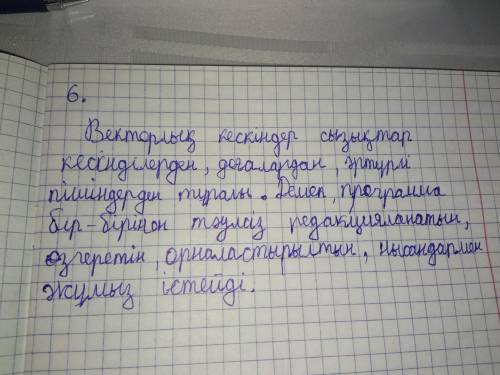 6.
Векторлық кескіндер сызықтар
кесінділерден, доғалардан, әртүрлі
пішіндерден тұралы. Демек, программа
бір-бірінон тәулсіз редакцияланатын,
өзгеретін, орналастырылтын, нысандармен
жұмыз істейді.